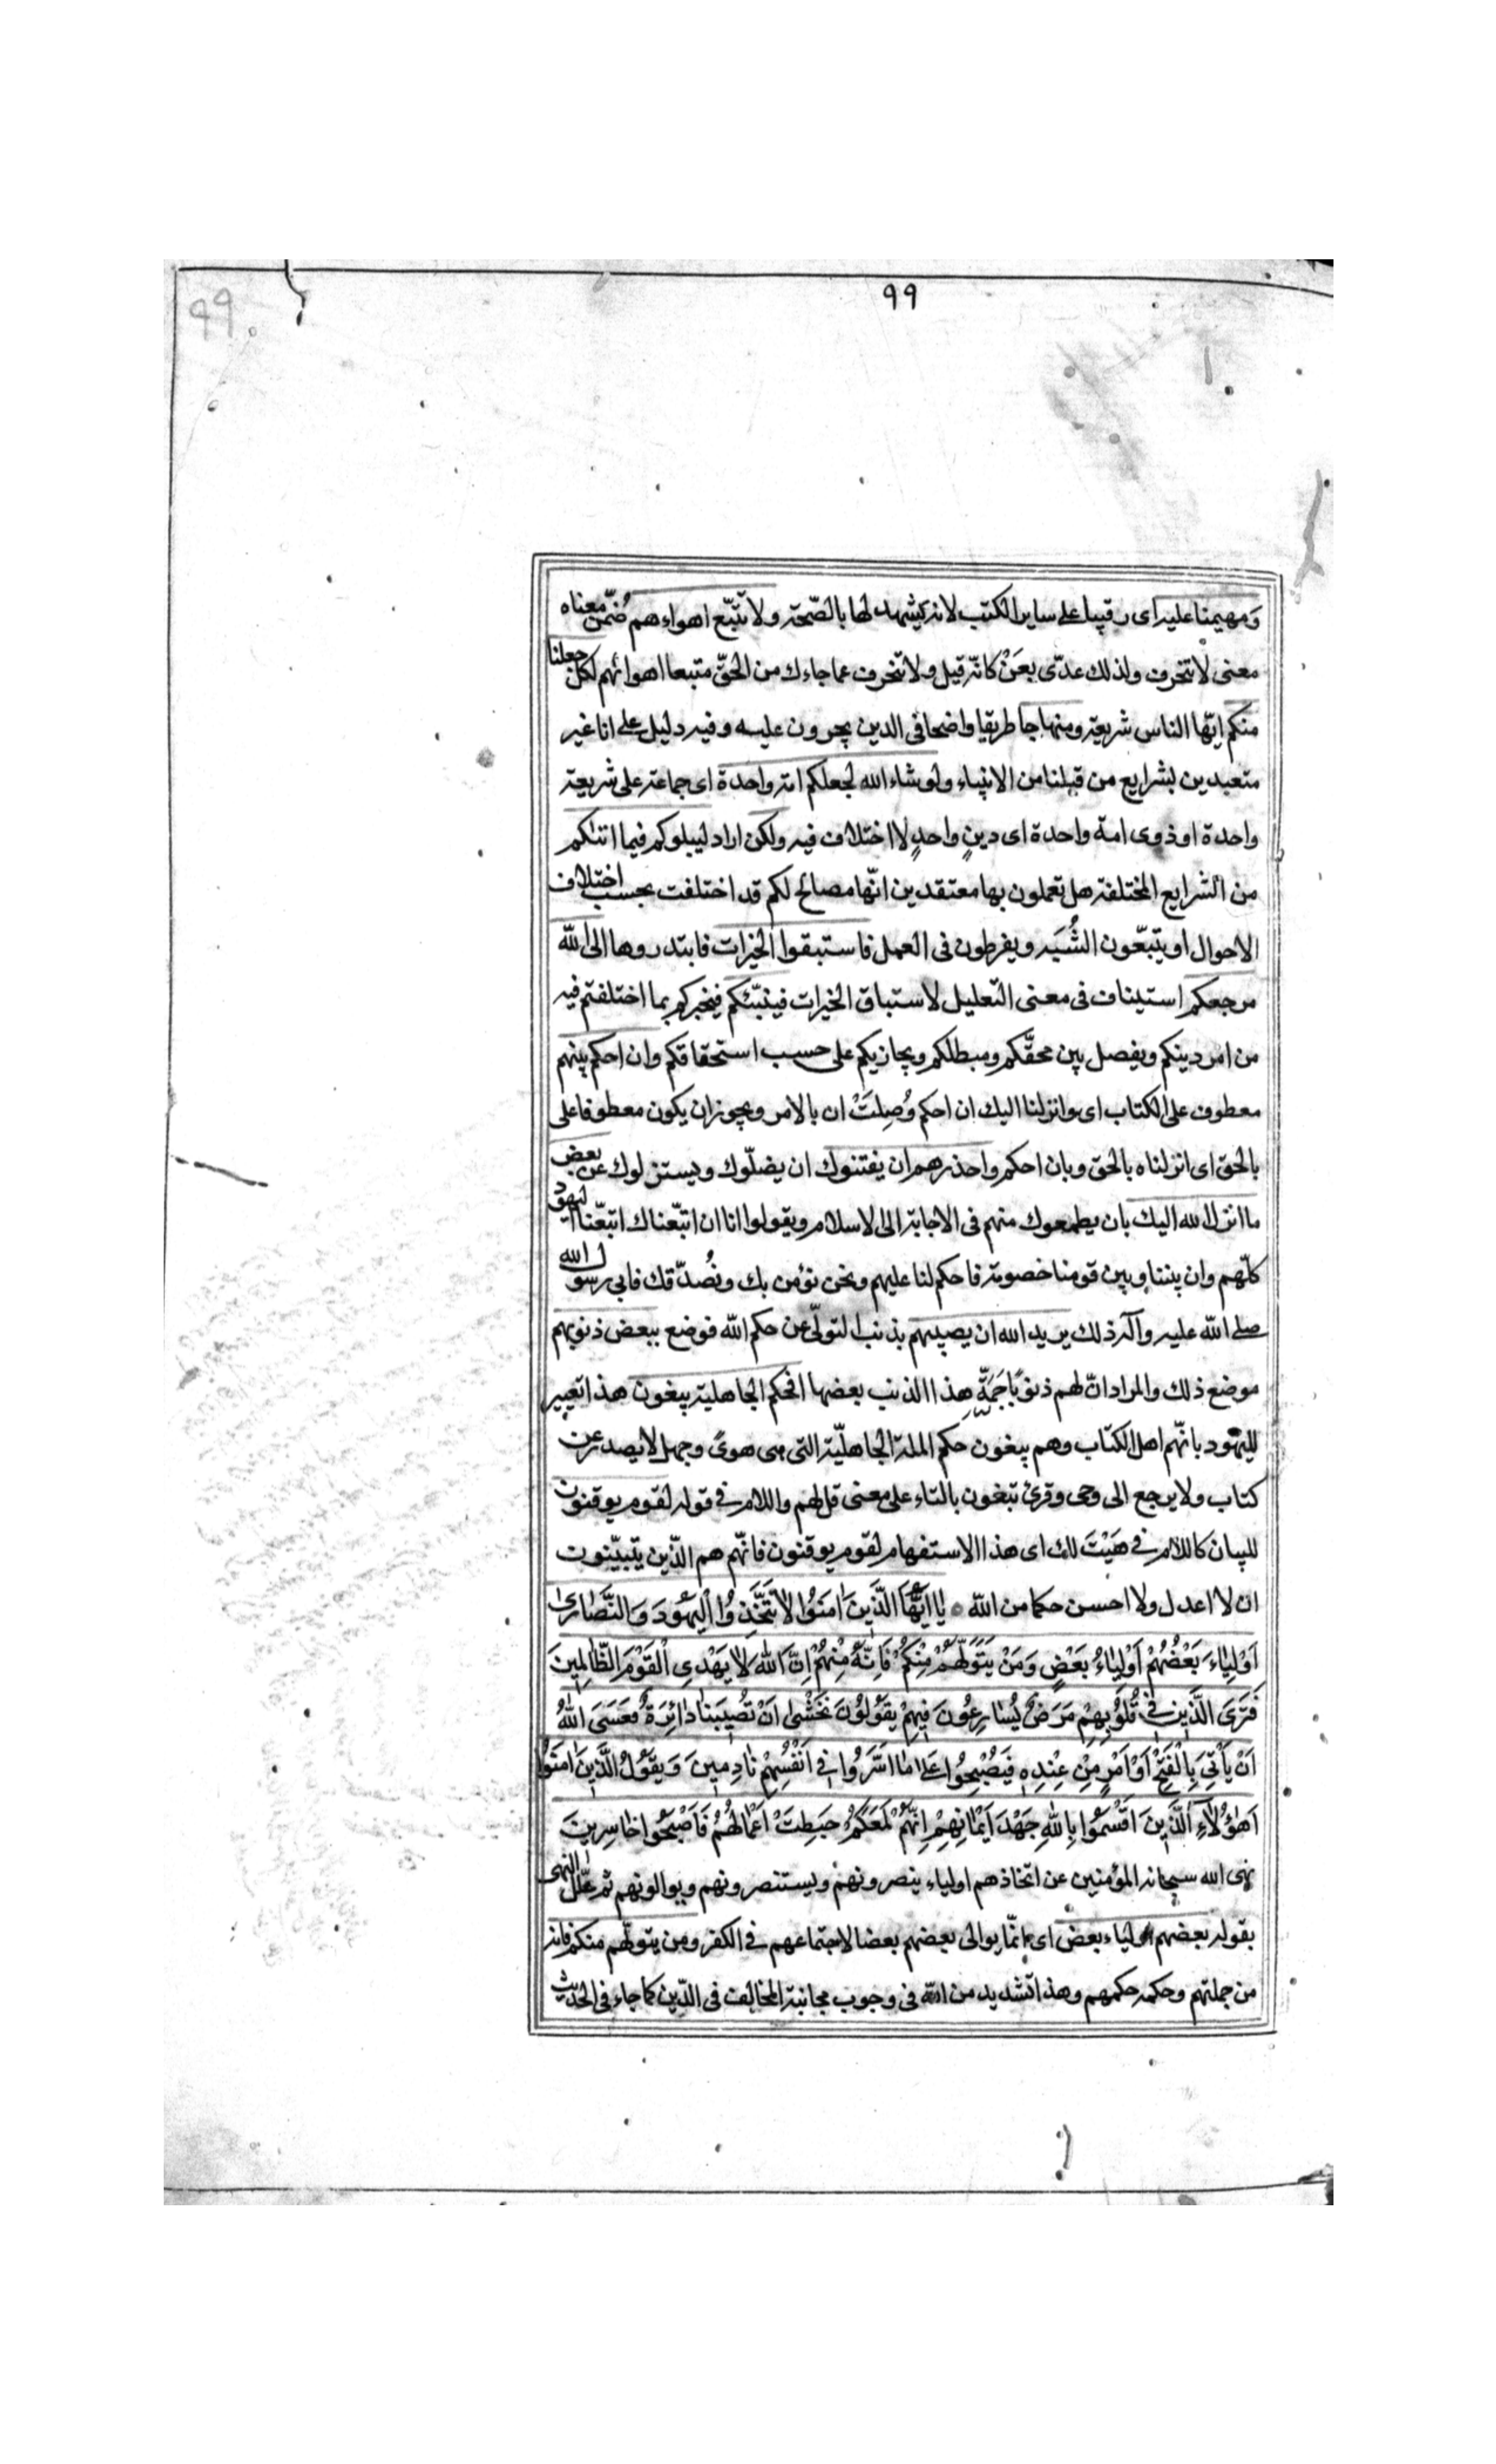 ٩٩
٩٩
ومهيمنا عليه اى رقيبا على ساير الكتب لانه يشهد لها بالصّحة ولا تتّبع اهواءهم ضُمّن معناه
معنى لا تنحرف ولذلك عدّى بعَنْ كانّه قيل ولا تنحرف عما جاءك من الحقّ متبعا اهوائهم لكل جعلنا
منكم ايّها الناس شريعة ومنهاجا طريقا واضحا فى الدين يجرون عليه وفيه دليل على انا غير
متعبدين بشرايع من قبلنا من الانبياء ولو شاء الله لجعلكم امة واحدة اى جماعة على شريعة
واحدة او ذوى امة واحدة اى دينٍ واحدٍ لا اختلاف فيه ولكن اراد ليبلوكم فيما اتىكم
من الشرايع المختلفة هل تعملون بها معتقدين انّها مصالح لكم قد اختلفت بحسب اختلاف
الاحوال او يتبّعون الشُّبَه ويفرطون فى العمل فاستبقوا الخيرات فابتدروها الى الله
مرجعكم استيناف فى معنى التعليل لاستباق الخيرات فينبّئكم فيخبركم بما اختلفتم فيه
من امر دينكم ويفصل بين محقّكم ومبطلكم ويجازيكم على حسب استحقاقكم وان احكم بينهم
معطوف على الكتاب اى وانزلنا اليك ان احكم وُصِلَتْ ان بالامر ويجوز ان يكون معطوفا على
بالحق اى انزلناه بالحق وبان احكم واحذرهم ان يفتنوك ان يضلّوك ويستنزلوك عن بعض
ما انزل الله اليك بان يطمعوك منهم فى الاجابة الى الاسلام ويقولوا انا ان اتبّعناك اتبّعنا اليهود
كلّهم وان بيننا وبين قومنا خصومة فاحكم لنا عليهم ونحن نؤمن بك ونُصدّقك فابى رسول الله
صلى الله عليه وآله ذلك يريد الله ان يصيبهم بذنب التولّى عن حكم الله فوضع ببعض ذنوبهم
موضع ذلك والمراد انّ لهم ذنوبًا جَمّةً هذا الذنب بعضها افحكم الجاهلية يبغون هذا تعيير
لليهود بانّهم اهل الكتاب وهم يبغون حكم الملة الجاهليّة التى هى هوىً وجهل لا يصدر عن
كتاب ولا يرجع الى وحى وقرئ تبغون بالتاء على معنى قل لهم واللام فى قوله لقوم يوقنون
للبيان كاللام فى هَيْتَ لك اى هذا الاستفهام لقوم يوقنون فانّهم هم الذّين يتبيّنون
ان لا اعدل ولا احسن حكما من الله ۞ يٰا اَيُّهَا الَّذينَ اٰمَنُوا لاٰ تَتَّخِذُوا الْيَهُودَ وَالنَّصٰارىٰ
اَوْلِيٰاءَ بَعْضُهُمْ اَوْلِيٰاءُ بَعْضٍ وَمَنْ يَتَوَلَّهُمْ مِنْكُمْ فَاِنَّهُ مِنْهُمْ اِنَّ اللهَ لاٰ يَهْدِى الْقَوْمَ الظّٰالِمينَ
فَتَرَى الَّذينَ فى قُلُوبِهِمْ مَرَضٌ يُسٰارِعُونَ فيهِمْ يَقُولُونَ نَخْشىٰ اَنْ تُصيبَنٰا دٰائِرَةٌ فَعَسَى اللهُ
اَنْ يَأْتِىَ بِالْفَتْحِ اَوْ اَمْرٍ مِنْ عِنْدِهِ فَيُصْبِحُوا عَلىٰ مٰا اَسَرُّوا فى اَنْفُسِهِمْ نٰادِمينَ وَيَقُولُ الَّذينَ اٰمَنُوا
اَهٰؤُلاٰءِ الَّذينَ اَقْسَمُوا بِاللهِ جَهْدَ اَيْمٰانِهِمْ اِنَّهُمْ لَمَعَكُمْ حَبِطَتْ اَعْمٰالُهُمْ فَاَصْبَحُوا خٰاسِرينَ
نهى الله سبحانه المؤمنين عن اتخاذهم اولياء ينصرونهم ويستنصرونهم ويوالونهم ثم علّل النهى
بقوله بعضهم اولياء بعض اى انّما يوالى بعضهم بعضا لاجتماعهم فى الكفر ومن يتولّهم منكم فانه
من جملتهم وحكمه حكمهم وهذا تشديد من الله فى وجوب مجانبة المخالف فى الدّين كما جاء فى الحديث